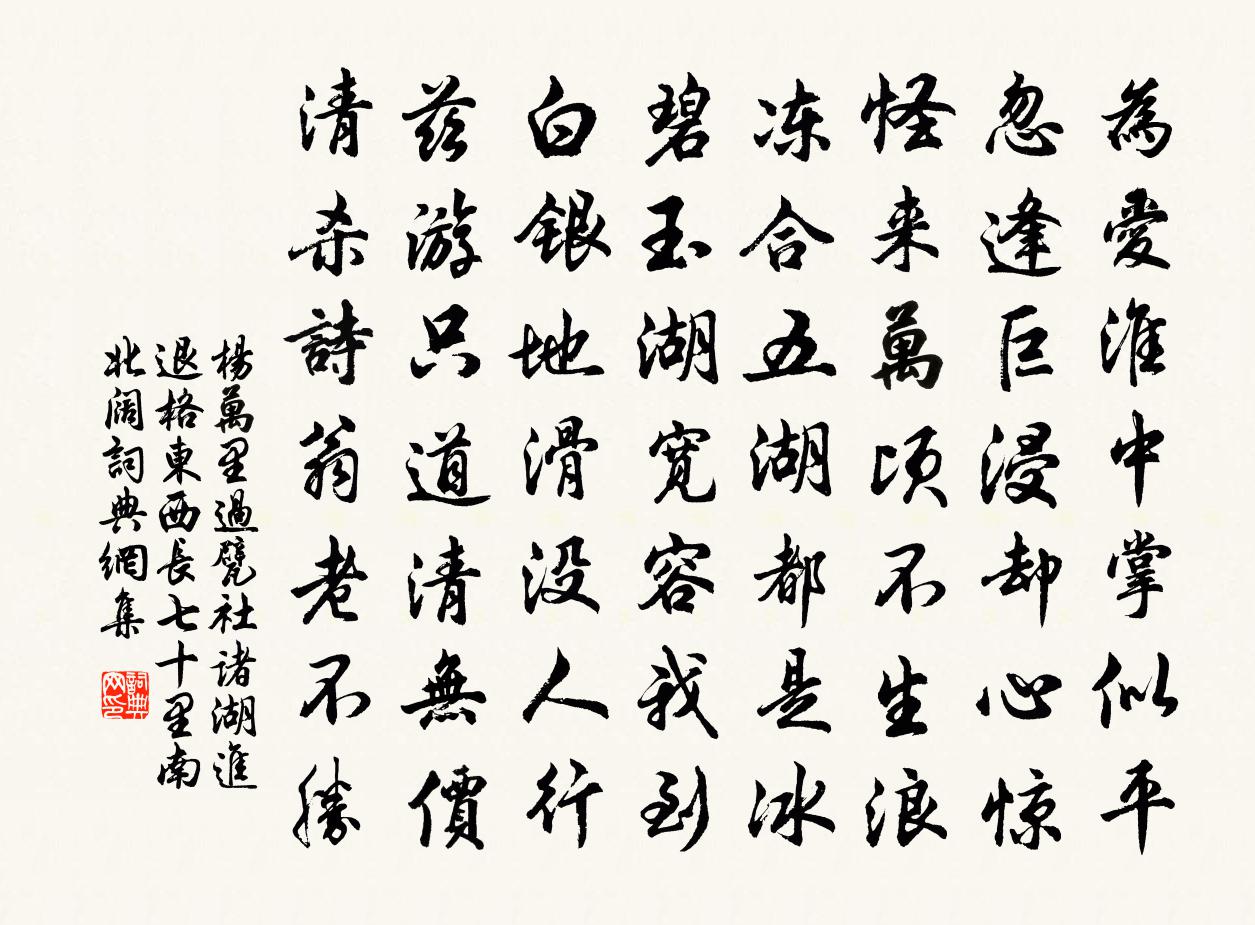 為愛淮中掌似平
忽逢巨浸却心惊
怪来萬顷不生浪
冻合五湖都是冰
碧玉湖宽容我到
白銀地滑没人行
茲游只道清無價
清杀詩翁老不勝
楊萬里過甓社诸湖進
退格東西長七十里南
北阔詞典網集
詞典网印